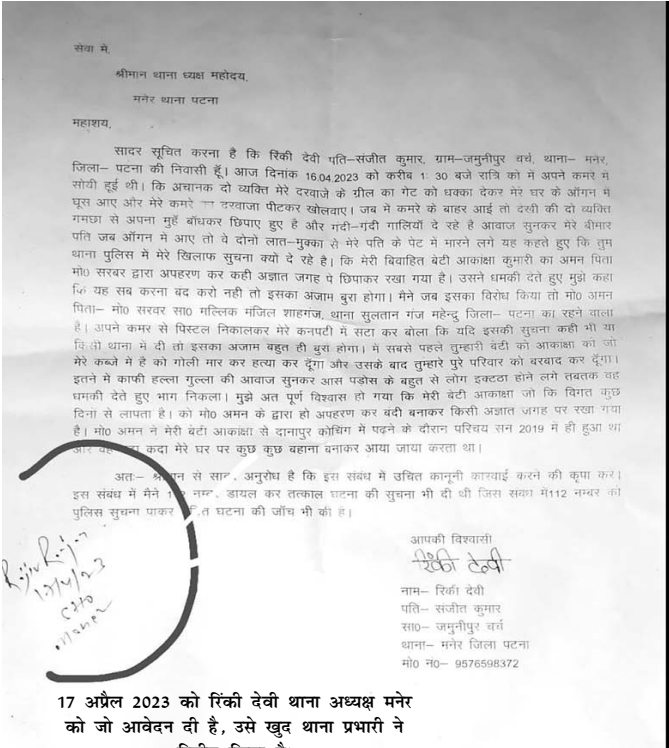 सेवा मे,
श्रीमान थाना ध्यक्ष महोदय,
मनेर थाना पटना
महाशय,
सादर सूचित करना है कि रिंकी देवी पति–संजीत कुमार, ग्राम–जमुनीपुर चर्च, थाना– मनेर,
जिला– पटना की निवासी हूँ। आज दिनांक 16.04.2023 को करीब 1: 30 बजे रात्रि को में अपने कमरे में
सोयी हूई थी। कि अचानक दो व्यक्ति मेरे दरवाजे के ग्रील का गेट को धक्का देकर मेरे घर के ऑगन में
घूस आए और मेरे कमरे दरवाजा पीटकर खोलवाए। जब में कमरे के बाहर आई तो देखी की दो व्यक्ति
गमछा से अपना मुहँ बाँधकर छिपाए हुए है और गंदी–गंदी गालियाँ दे रहे है आवाज सुनकर मेरे बीमार
पति जब ऑगन में आए तो वे दोनो लात–मुक्का से मेरे पति के पेट में मारने लगे यह कहते हुए कि तुम
थाना पुलिस में मेरे खिलाफ सुचना क्यो दे रहे है। कि मेरी बिवाहित बेटी आकांक्षा कुमारी का अमन पिता
मो0 सरबर द्वारा अपहरण कर कही अज्ञात जगह पे छिपाकर रखा गया है। उसने धमकी देते हुए मुझे कहा
कि यह सब करना बंद करो नही तो इसका अंजाम बुरा होगा। मैने जब इसका विरोध किया तो मो0 अमन
पिता– मो0 सरवर सा0 मल्लिक मंजिल शाहगंज, थाना सुलतान गंज महेन्द्रु जिला– पटना का रहने वाला
है। अपने कमर से पिस्टल निकालकर मेरे कनपटी में सटा कर बोला कि यदि इसकी सुचना कही भी या
किसी थाना में दी तो इसका अजाम बहुत ही बुरा होगा। में सबसे पहले तुम्हारी बेटी को आकांक्षा को जो
मेरे कब्जे में है को गोली मार कर हत्या कर दूँगा और उसके बाद तुम्हारे पुरे परिवार को बरबाद कर दूँगा।
इतने में काफी हल्ला गुल्ला की आवाज सुनकर आस पड़ोस के बहुत से लोग इक्टठा होने लगे तबतक वह
धमकी देते हुए भाग निकला। मुझे अत पूर्ण विश्वास हो गया कि मेरी बेटी आकांक्षा जो कि विगत कुछ
दिनो से लापता है। को मो0 अमन के द्वारा हो अपहरण कर बंदी बनाकर किसी अज्ञात जगह पर रखा गया
है। मो0 अमन ने मेरी बेटी आकांक्षा से दानापुर कोचिंग में पढ़ने के दौरान परिचय सन 2019 में ही हुआ था
और कदा मेरे घर पर कुछ कुछ बहाना बनाकर आया जाया करता था।
अतः– से अनुरोध है कि इस संबंध में उचित कानूनी कारवाई करने की कृपा कर।
इस संबंध में मैने डायल कर तत्काल घटना की सुचना भी दी थी जिस संबंध में112 नम्बर की
पुलिस सुचना पाकर घटना की जाँच भी की है।
आपकी विश्वासी
रिंकी देवी
नाम– रिंकी देवी
पति– संजीत कुमार
सा0– जमुनीपुर चर्च
थाना– मनेर जिला पटना
मो0 न0– 9576598372
17/4/23
SHO
Maner
17 अप्रैल 2023 को रिंकी देवी थाना अध्यक्ष मनेर
को जो आवेदन दी है, उसे खुद थाना प्रभारी ने